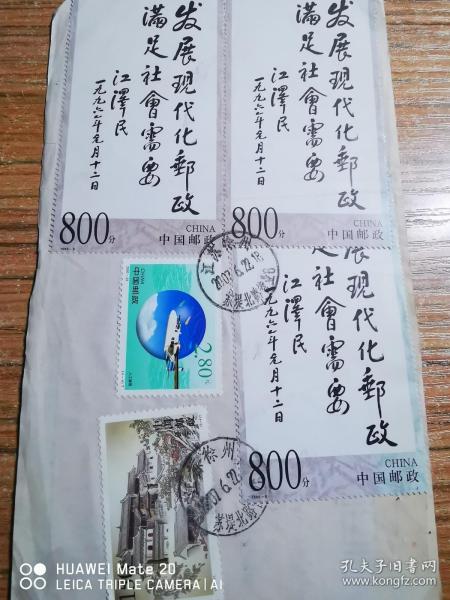 发展现代化郵政
满足社會需要
江澤民
一九九六年元月十二日
800分
CHINA
中国邮政
发展现代化郵政
满足社會需要
江澤民
一九九六年元月十二日
800分
CHINA
中国邮政
发展现代化郵政
满足社會需要
江澤民
一九九六年元月十二日
800分
CHINA
中国邮政
中国邮政
CHINA
2.80元
江苏徐州
HUAWEI Mate 20
LEICA TRIPLE CAMERA | AI
孔夫子旧书网
www.kongfz.com